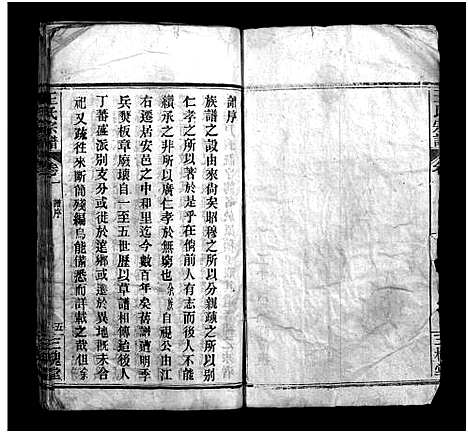 王氏宗譜
卷一
譜序
五
三槐堂
譜序
族譜之設由來尚矣昭穆之所以分親疏之所以別
仁孝之所以興胥是乎在倘前人有志而後人不能
續承之非所以廣仁孝於無窮也余族自視公由江
右遷居安邑之中和里迄今數百年矣舊譜遭明季
兵燹板章廢墜自一至五世歷以草譜相傳迨後人
丁蕃盛派別支分或徙於遠鄉或遷於異地既未合
祀又疏往來斷簡殘編烏能備悉而詳載之哉但余
王氏宗譜
卷
三槐堂